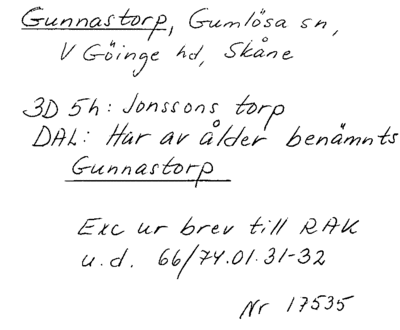 Gunnastorp, Gumlösa sn,
V Göinge hd, Skåne
3D 5h: Jonssons torp
DAL: Har av ålder benämnts
Gunnastorp
Exc ur brev till RAK
u.d. 66/74.01.31-32
Nr 17535